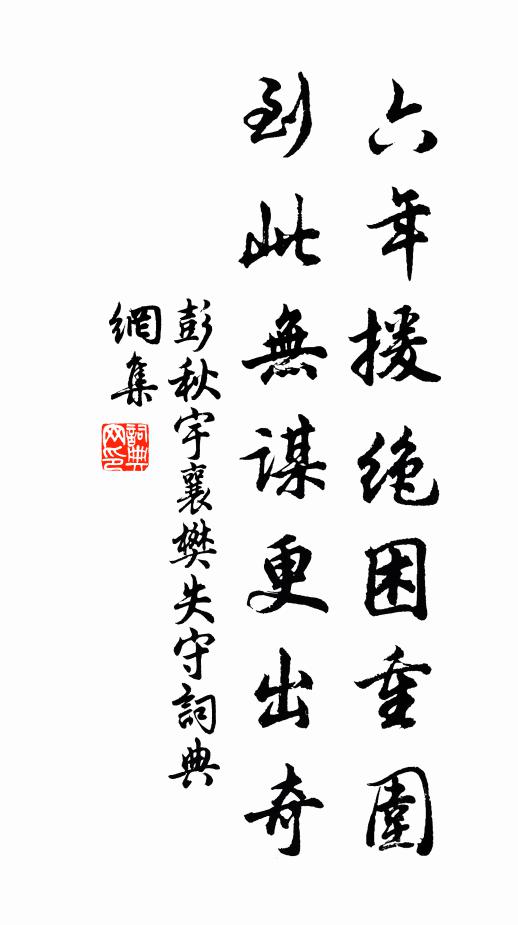 六年援绝困重圍
到此無謀更出奇
彭秋宇襄樊失守詞典
網集
詞典
网印